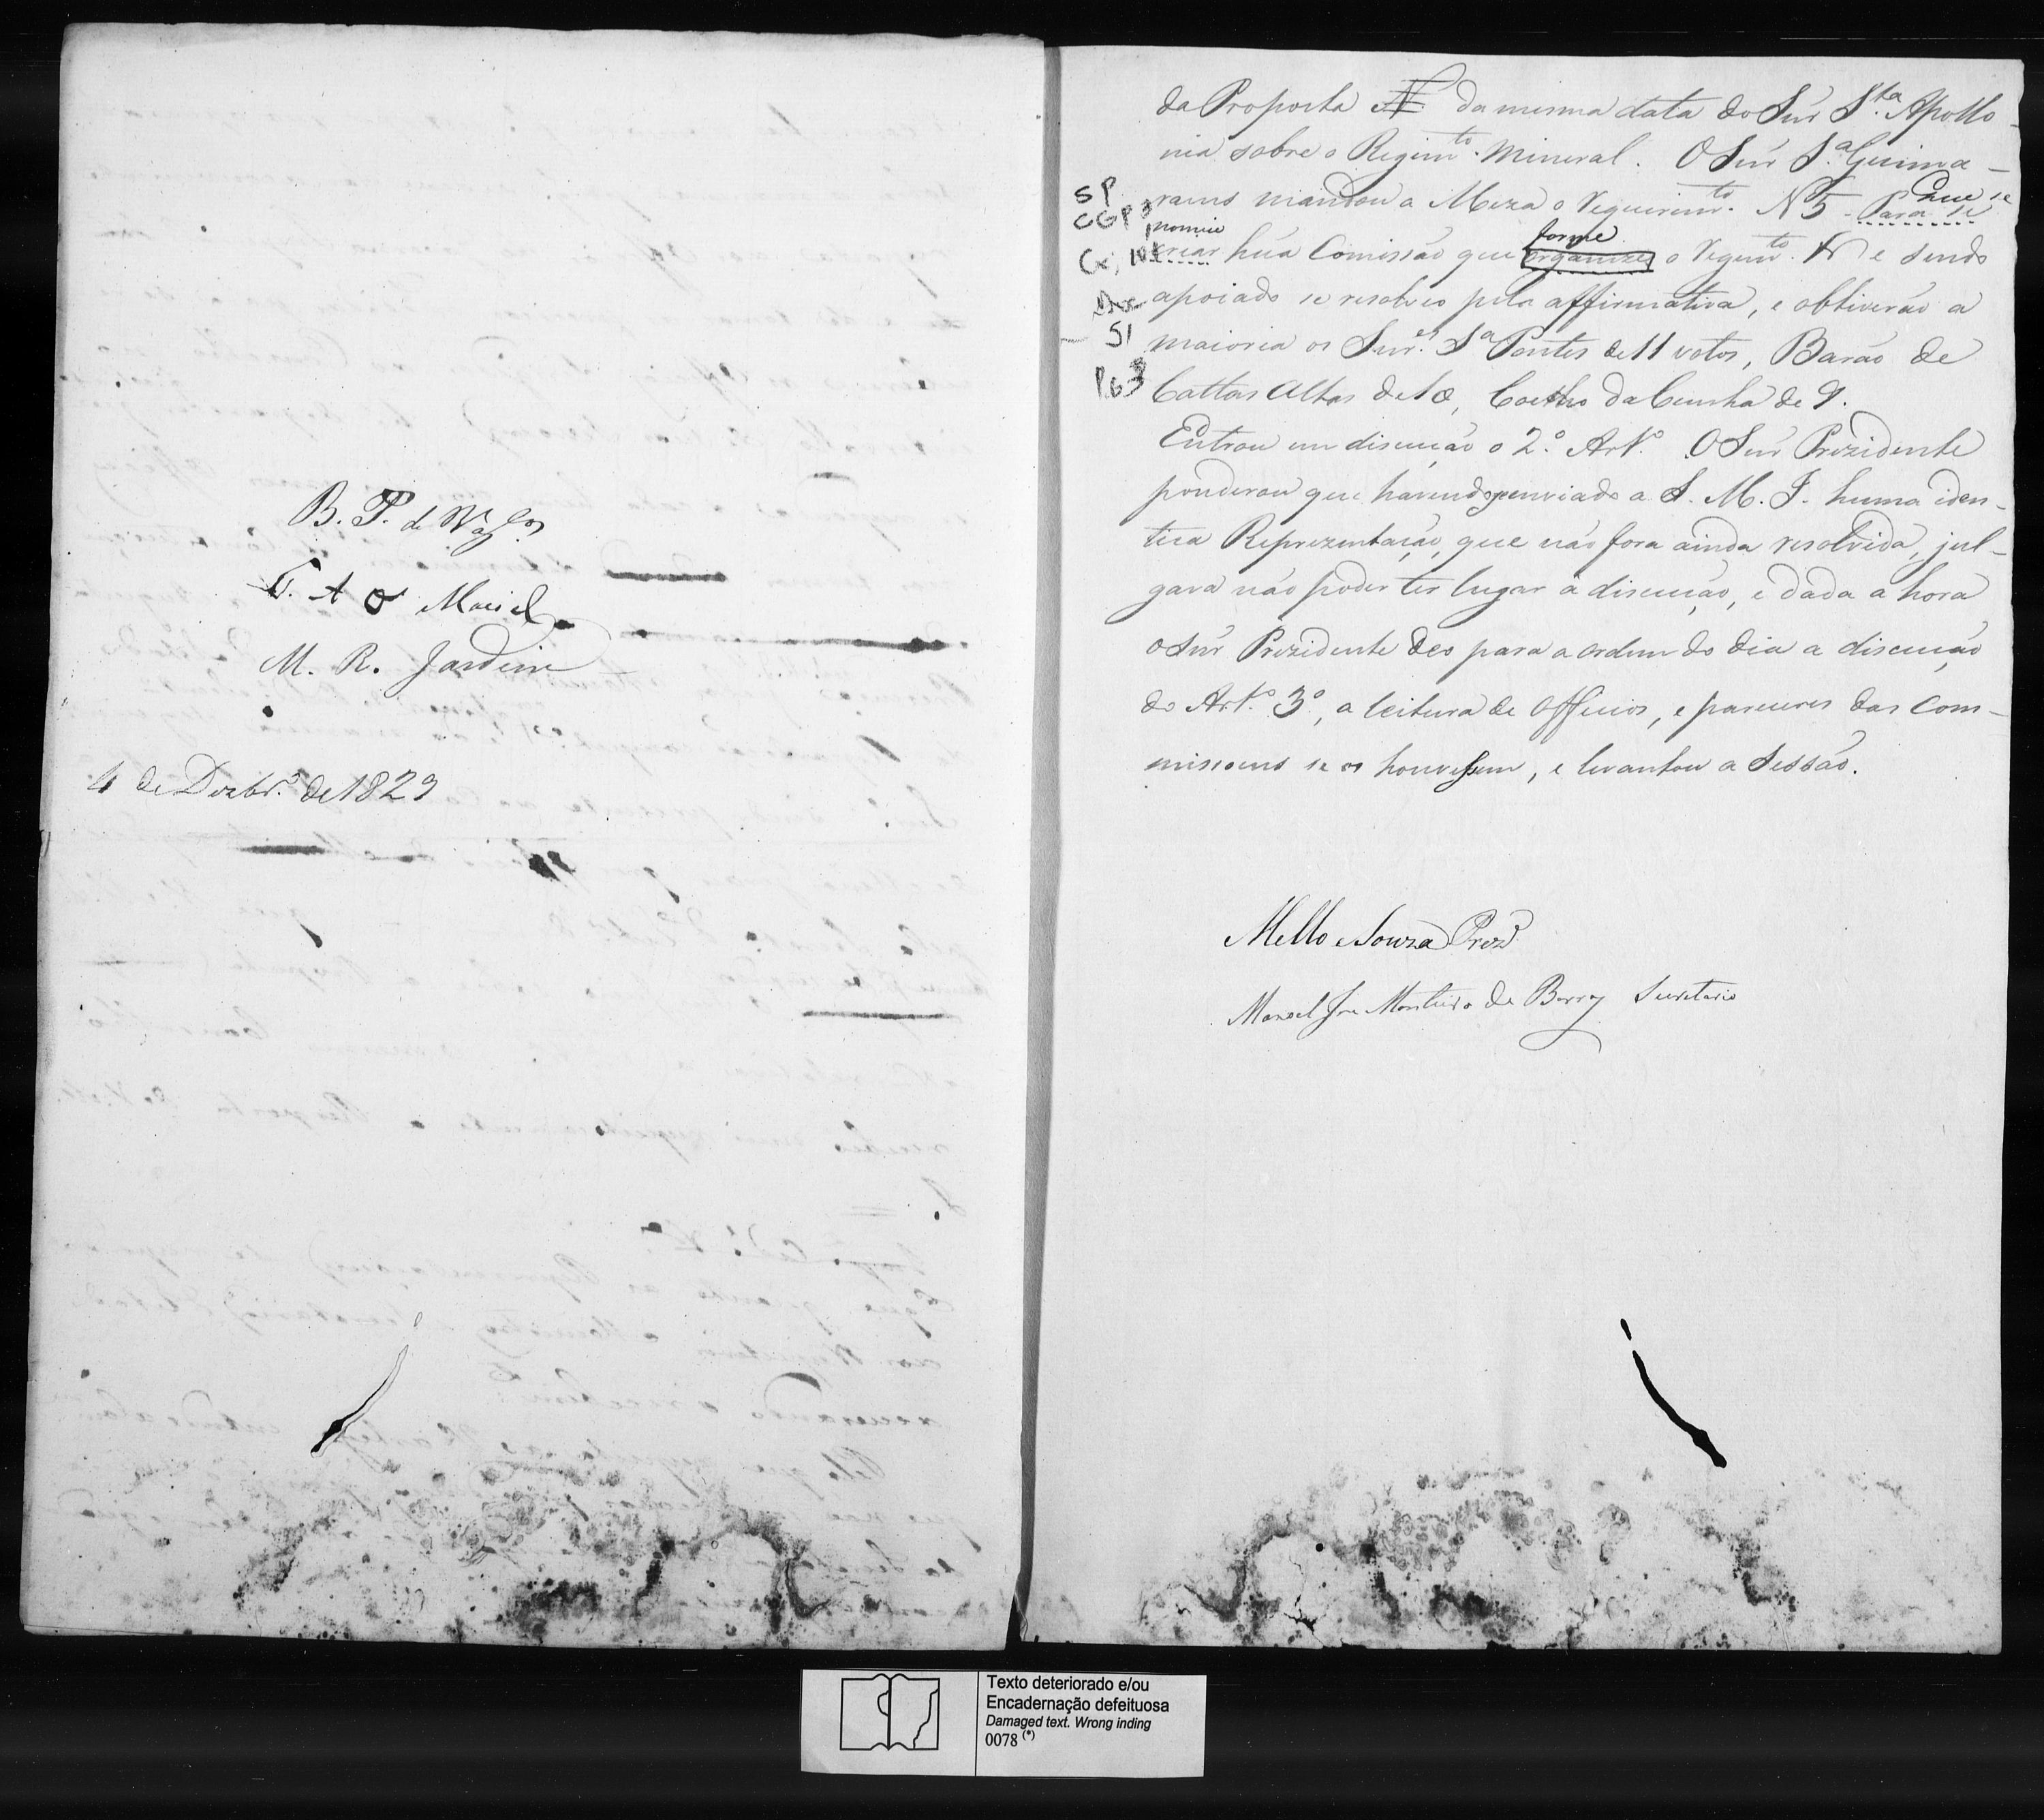 B. P. de Vas.cos
T. A. O. Maciel
M. R. Jardim
4 de Dezbr.o de 1829
da Proposta N. da mesma data do Snr S.ta Apollo-
nia sobre o Regim.to Mineral. O Snr S.a Guima-
SP
CGP 3
raens mandou a Meza o requerim.to N 5 Para se
que se
nomeie
Cx, 10
criar hũa Comissão que organize o Regim.to e sendo
forme
apoiado se resolveo pela affirmativa, e obtiverão a
51
maioria os Snr.es S.a Pontes de 11 votos, Barão de
P.63
Cattas Altas de 10, Coelho da Cunha de 9.
Entrou em discução o 2.o Art.o O Snr Prezidente
ponderou que havendo enviado a S. M. I. huma iden-
tica Reprezentação, que não fora ainda resolvida, jul-
gava não poder ter lugar a discução, e dada a hora
o Snr Prezidente deo para a ordem do dia a discução
do Art.o 3.o, a leitura de officios, e pareceres das Com-
missoens se os houvessem, e levantou a Sessão.
Mello e Souza Prezd.e
Manoel Jze Monteiro de Barros Secretario
Texto deteriorado e/ou
Encadernação defeituosa
Damaged text. Wrong inding
0078 (*)